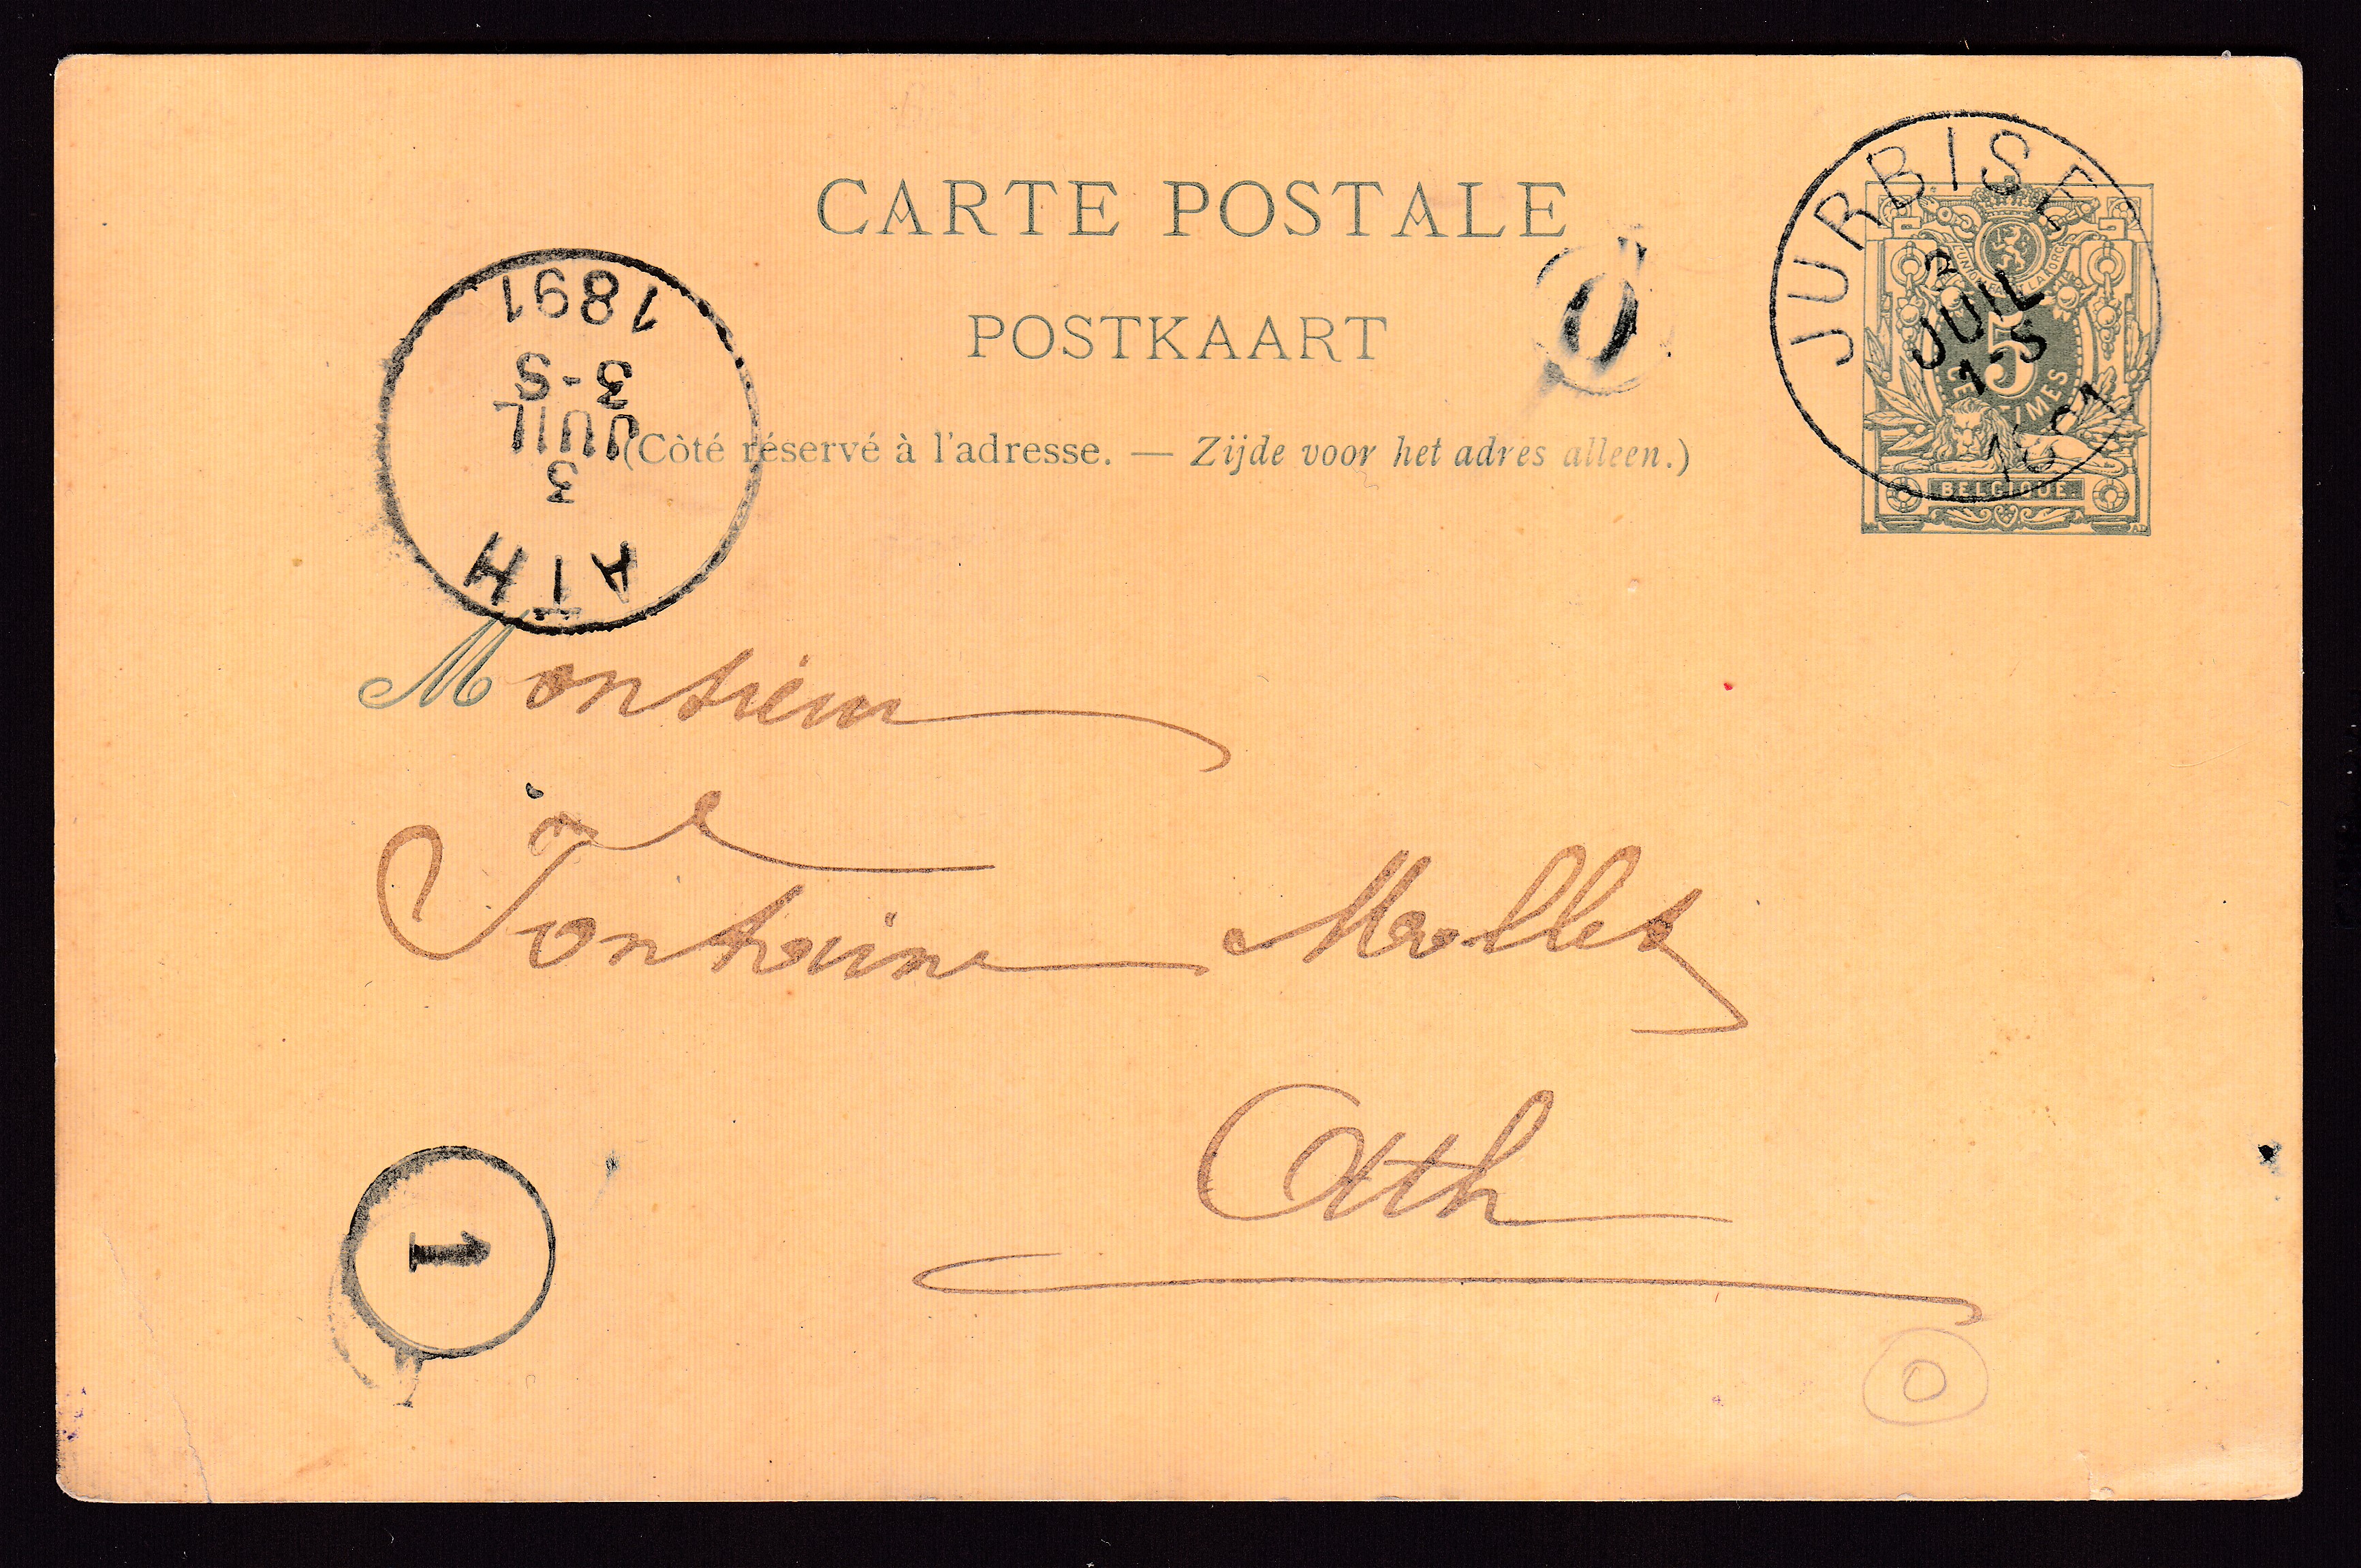 CARTE POSTALE
POSTKAART
(Côté réservé à l'adresse. — Zijde voor het adres alleen.)
JURBISE
3
JUIL
1-S
1891
5
CENTIMES
L'UNION FAIT LA FORCE
BELGIQUE
ATH
3
JUIL
3-S
1891
O
Monsieur
Fontaine Mollet
Ath
1
O